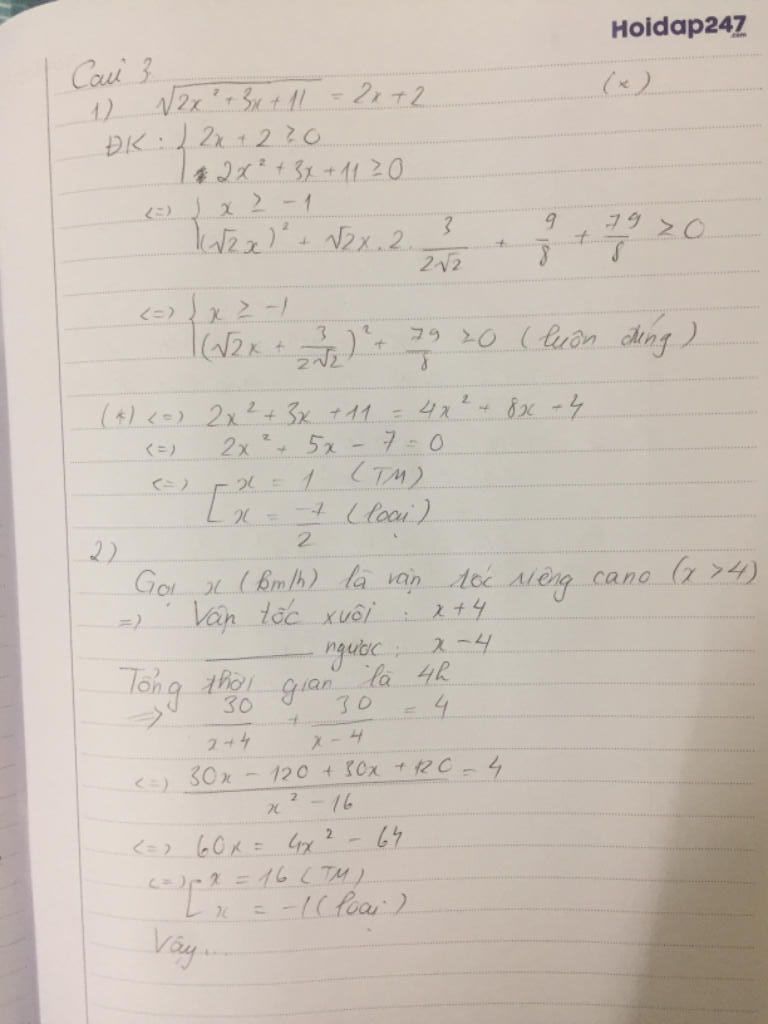 Hoidap247
.com
Câu 3
1) √(2x² + 3x + 11) = 2x + 2 (*)
ĐK: { 2x + 2 ≥ 0
2x² + 3x + 11 ≥ 0
<=> { x ≥ -1
(√2x)² + √2x . 2 . 3/(2√2) + 9/8 + 79/8 ≥ 0
<=> { x ≥ -1
(√2x + 3/(2√2))² + 79/8 ≥ 0 (luôn đúng)
(*) <=> 2x² + 3x + 11 = 4x² + 8x + 4
<=> 2x² + 5x - 7 = 0
<=> [ x = 1 (TM)
x = -7/2 (loại)
2)
Gọi x (km/h) là vận tốc riêng cano (x > 4)
=> Vận tốc xuôi : x + 4
____ ngược : x - 4
Tổng thời gian là 4h
=> 30/(x+4) + 30/(x-4) = 4
<=> (30x - 120 + 30x + 120)/(x² - 16) = 4
<=> 60x = 4x² - 64
<=> [ x = 16 (TM)
x = -1 (loại)
Vậy...